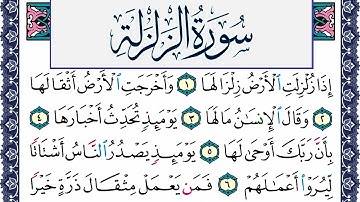 سُورَةُ الزَّلْزَلَةِ
إِذَا زُلْزِلَتِ ٱلْأَرْضُ زِلْزَالَهَا ١ وَأَخْرَجَتِ ٱلْأَرْضُ أَثْقَالَهَا
٢ وَقَالَ ٱلْإِنسَـٰنُ مَا لَهَا ٣ يَوْمَئِذٍ تُحَدِّثُ أَخْبَارَهَا ٤
بِأَنَّ رَبَّكَ أَوْحَىٰ لَهَا ٥ يَوْمَئِذٍ يَصْدُرُ ٱلنَّاسُ أَشْتَاتًا
لِّيُرَوْا۟ أَعْمَـٰلَهُمْ ٦ فَمَن يَعْمَلْ مِثْقَالَ ذَرَّةٍ خَيْرًا